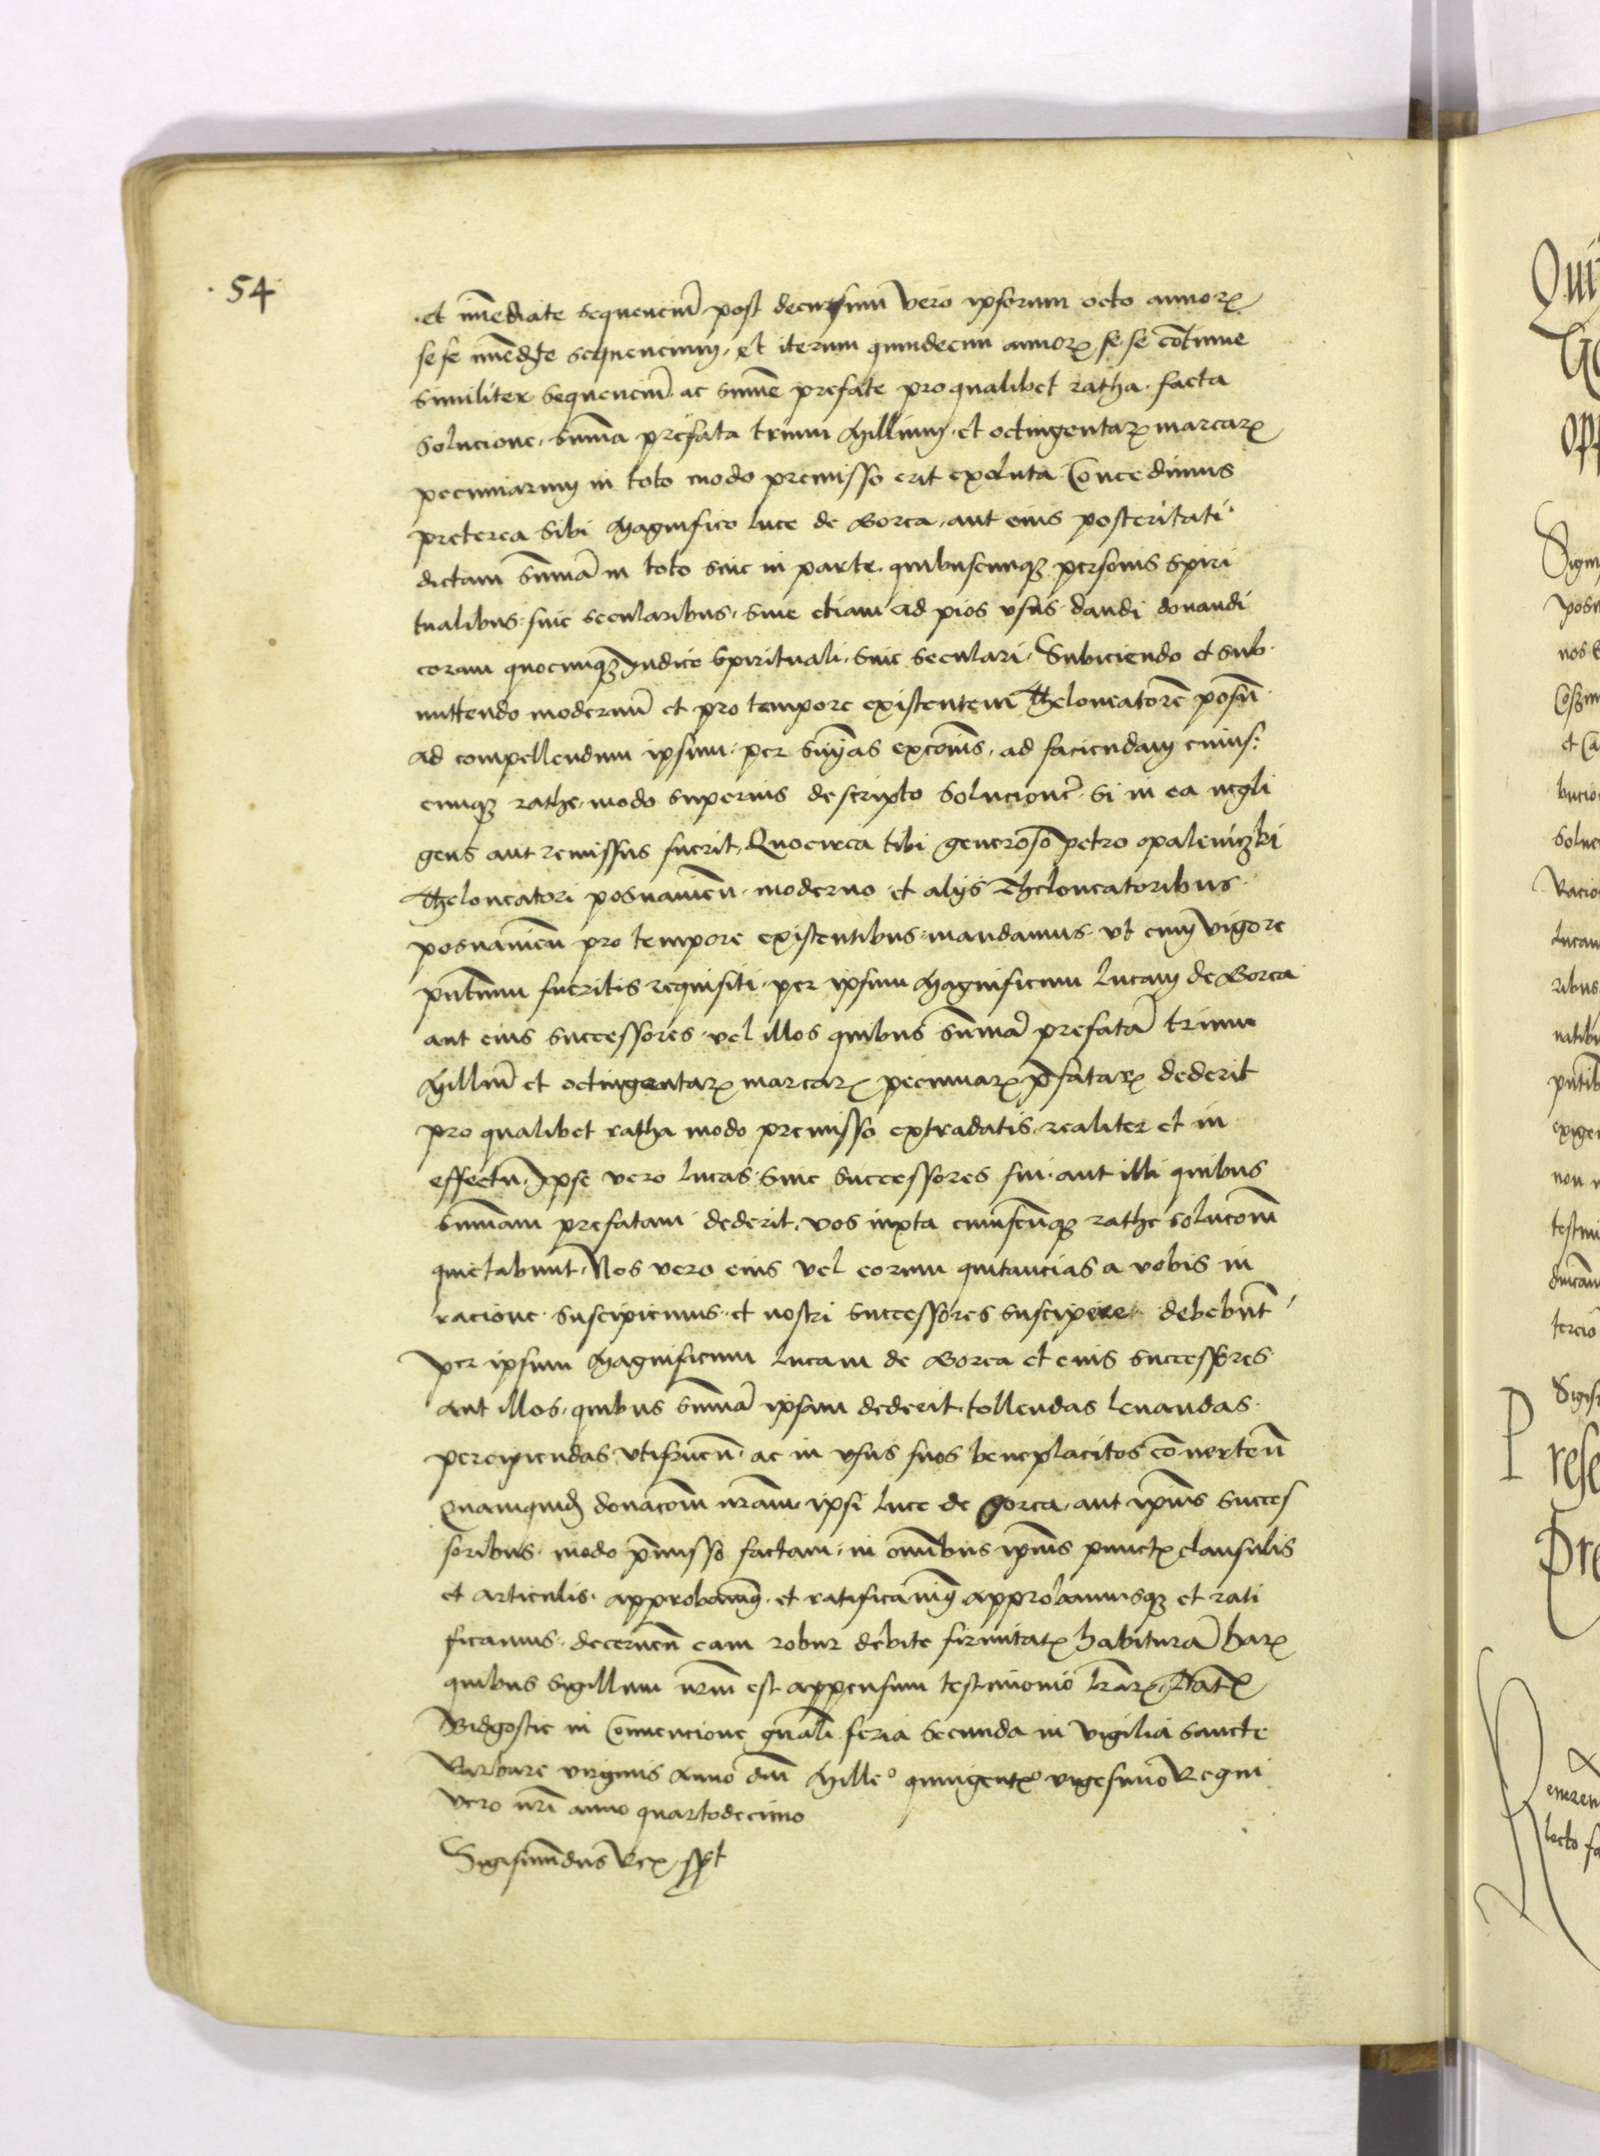 54
et imediate sequenciu post decursum vero ipsorum octo annorꝝ
se se imediate sequencium, et iterum quindecim annorꝝ se se cotinue
similiter sequenciu ac sume prefate pro qualibet ratha facta
solucione, suma prefata trium Millium et octingentarꝝ marcarꝝ
pecuniarum in toto modo premisso erit exoluta Concedimus
preterea sibi Magnifico luce de Gorca, aut eius posteritati
dictam sumã in toto siue in parte, quibuscunqꝫ personis spiri
tualibus, siue secularibus, siue etiam ad pios vsus dandi donandi
coram quocunqꝫ Judice spirituali, siue seculari, Subiciendo et sub
mittendo modernũ et pro tempore existentem Theloneatorẽ posñ
ad compellendum ipsum, per excoms, ad faciendam cuius
cunqꝫ rathe, modo superius descripto solucionẽ, si in ea negli
gens aut remissus fuerit, Quocirca tibi generoso petro opaleniczki
Theloneatori posnanieñ moderno et alijs Theloneatoribus
posnanieñ pro tempore existentibus, mandamus, vt cum vigore
pñtium fueritis requisiti, per ipsum Magnificum lucam de Gorca
aut eius successores, vel illos quibus sumã prefatã trium
Milliũ et octingentarꝝ marcarꝝ pecuniarꝝ p̃fatarꝝ dederit
pro qualibet ratha modo premisso extradatis, realiter et in
effectu, Ipse vero lucas, siue successores sui, aut illi quibus
sum̃am prefatam dederit, vos iuxta cuiuscũqꝫ rathe solucom̃
quietabunt, Nos vero eius vel eorum quitancias a vobis in
racione suscipiemus, et nostri successores suscipere debebũt
per ipsum Magnificum lucam de Gorca et eius successores
aut illos, quibus sumã ipsam dederit, tollendas leuandas
percipiendas vtifrueñ ac in vsus suos beneplacitos conuerteñ
Quamquid donacom̃ nrãm, ipsi luce de Gorca, aut ipĩus succes
soribus modo p̃misso factam, in omĩbus ipĩus punctꝭ clausulis
et articulis approbandã et ratificandã approbamusqꝫ et rati
ficamus, decerneñ eam robur debite firmitatꝭ habiturã harꝝ
quibus Sigillum nrm̃ est appensum testimonio lrãrꝝ, Datꝭ
Bidgostie in Conuencione gñali feria secunda in vigilia sancte
Barbare virginis Anno dñi Milleº quingentº vigesimo Regni
vero nrĩ anno quartodecimo
Sigismũdus Rex sspt